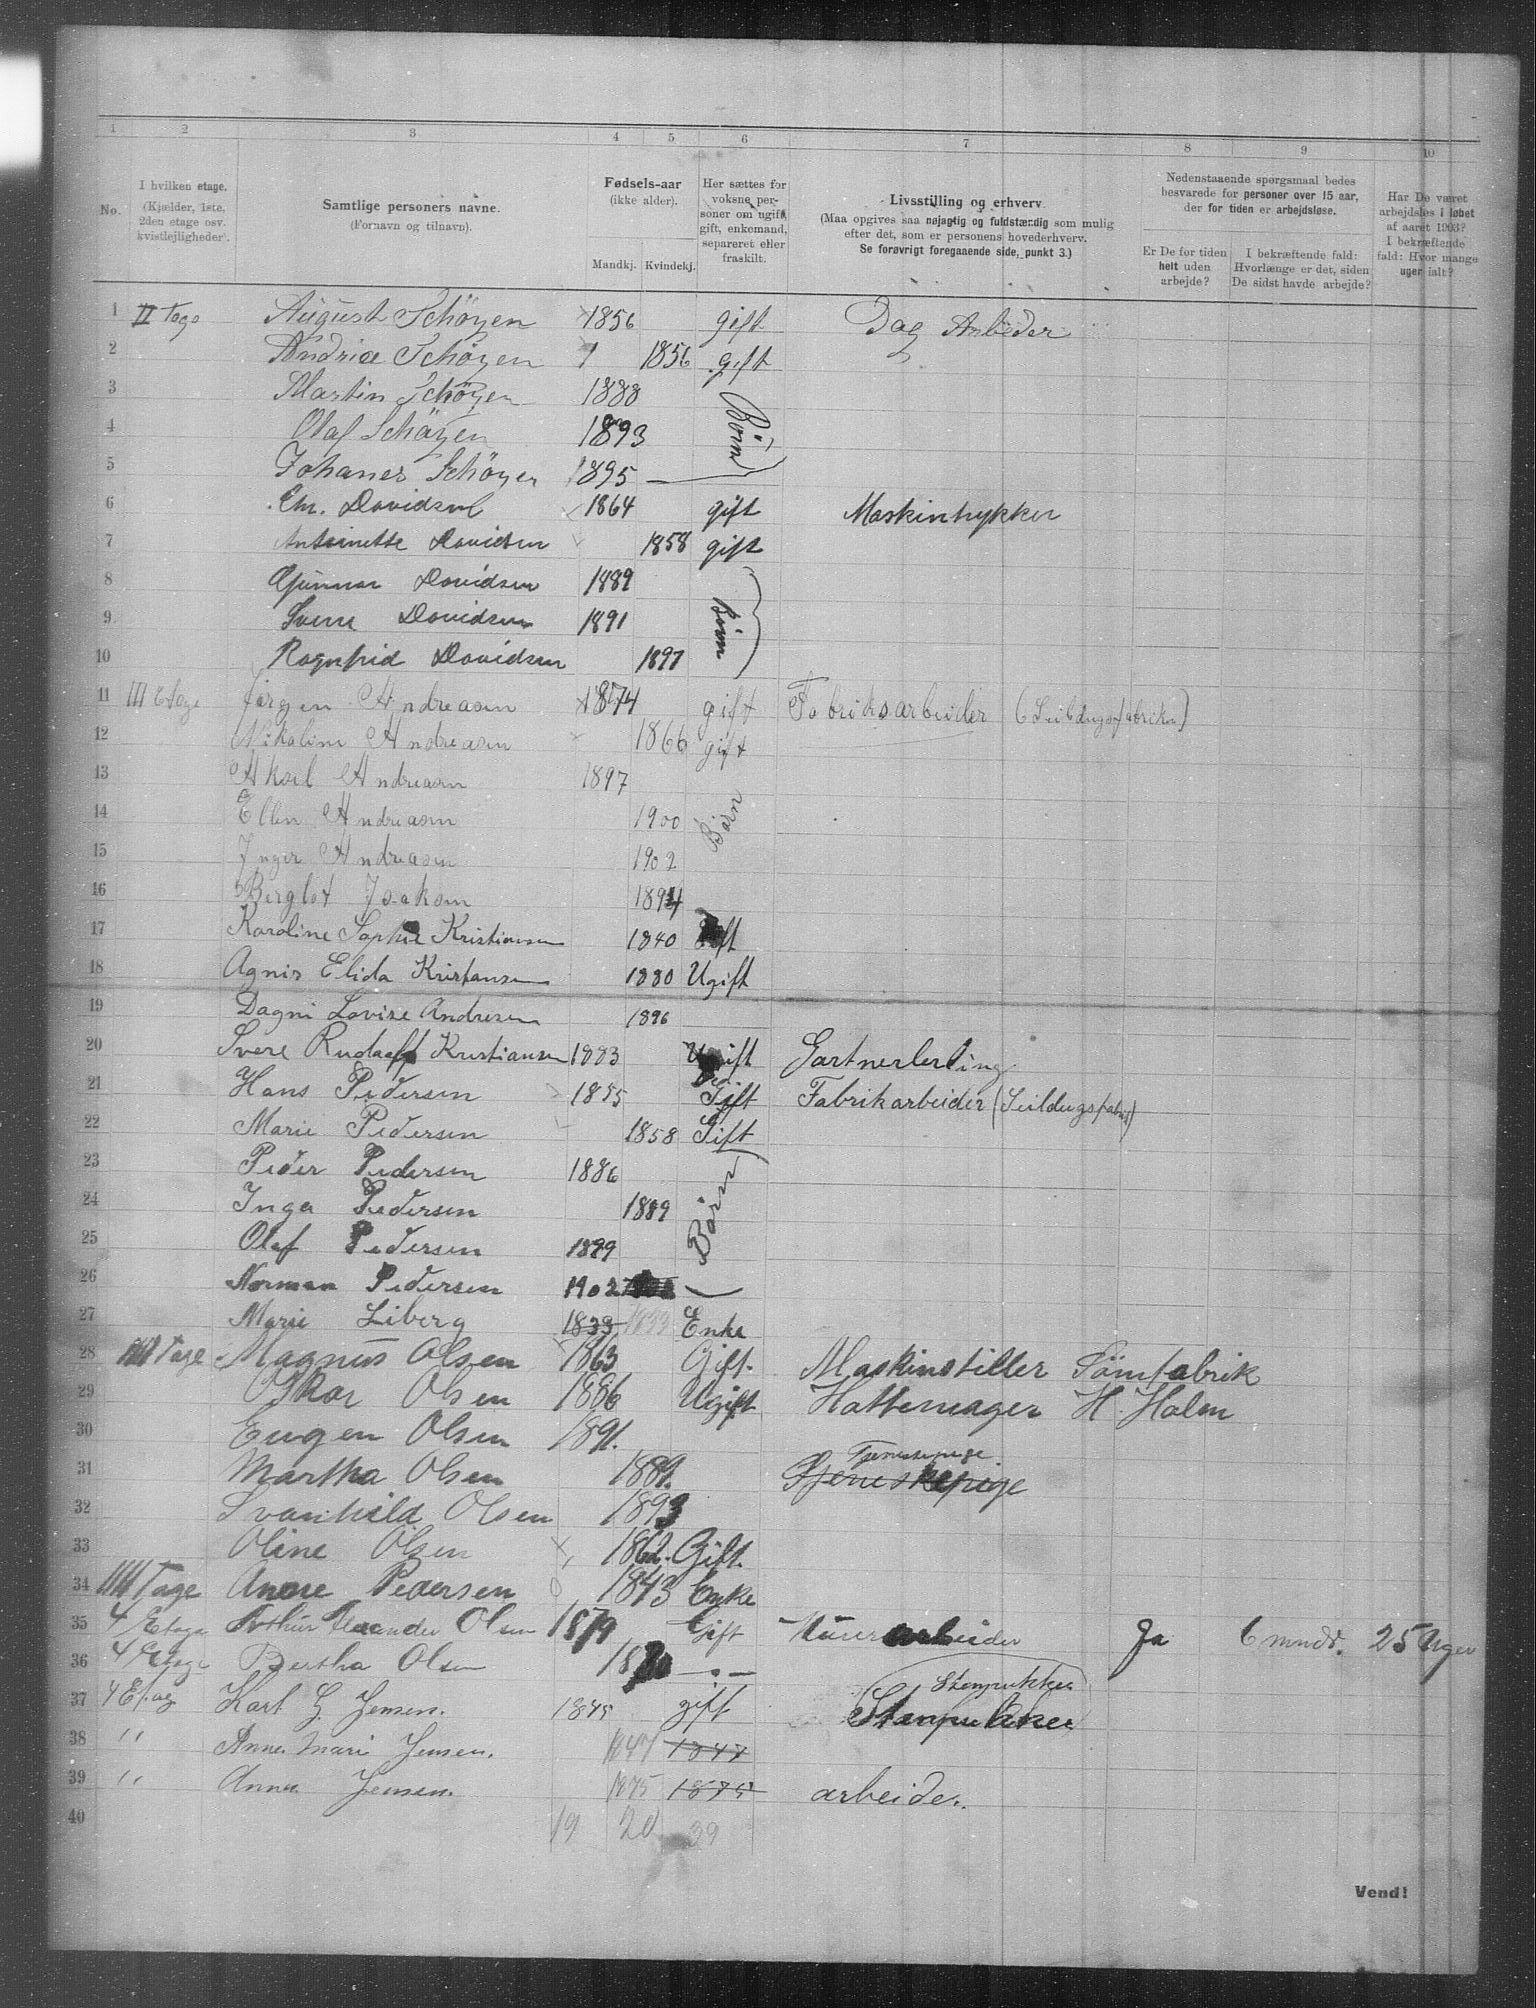 1 2 3 4 5 6 7 8 9 10
No. I hvilken etage. (Kjælder, 1ste, 2den etage osv. kvistlejligheder). Samtlige personers navne. (Fornavn og tilnavn). Fødsels-aar (ikke alder). Mandkj. Kvindekj. Her sættes for voksne personer om ugift, gift, enkemand, separeret eller fraskilt. Livsstilling og erhverv. (Maa opgives saa nøjagtig og fuldstændig som mulig efter det, som er personens hovederhverv. Se forøvrigt foregaaende side, punkt 3.) Nedenstaaende spørgsmaal bedes besvarede for personer over 15 aar, der for tiden er arbejdsløse. Er De for tiden helt uden arbejde? I bekræftende fald: Hvorlænge er det, siden De sidst havde arbejde? Har De været arbejdsløs i løbet af aaret 1903? I bekræftende fald: Hvor mange uger ialt?
1 II Tage August Schöyen 1856 gift Dag Arbeder
2 Andrice Schöyen 1856 gift
3 Martin Schöyen 1888 Börn
4 Olaf Schöyen 1893
5 Johanes Schöyen 1895
6 Chr. Davidsen 1864 gift Maskintrykker
7 Antoinette Davidsen 1858 gift
8 Gunnar Davidsen 1889 Börn
9 Sverre Davidsen 1891
10 Ragnhid Davidsen 1897
11 III Etage Jørgen Andreasen 1874 gift Fabriksarbeider (Seildugsfabrikn)
12 Nikoline Andreasen 1866 gift
13 Aksel Andreasen 1897
14 Ellen Andreasen 1900 Børn
15 Inger Andreasen 1902
16 Berglot Isaksen 1894
17 Karoline Sophie Kristiansen 1840 Gift
18 Agnis Elida Kristansen 1880 Ugift
19 Dagni Lovise Andresen 1896
20 Svere Rudolf Kristiansen 1883 Ugift Gartnerlerling
21 Hans Pedersen 1855 Gift Fabrikarbeider (Seildugsfabrik)
22 Marie Pedersen 1858 Gift
23 Peder Pedersen 1886 Børn
24 Inga Pedersen 1889
25 Olaf Pedersen 1899
26 Norman Pedersen 1902
27 Marie Liberg 1833 1833 Enke
28 IIII Tage Magnus Olsen 1863 Gift. Maskinstiller Sömfabrik
29 Oskar Olsen 1886 Ugift Hattemager H. Holm
30 Eugen Olsen 1891.
31 Martha Olsen 1889. Tjeneskepige Tjenestepige.
32 Svanhild Olsen 1893
33 Oline Olsen 1862. Gift.
34 IIII Tage Anne Pedersen 1843 Enke
35 4 Etage Arthur Alexander Olsen 1879 Gift Murerarbeider Ja 6 mndr. 25 Uger
36 4 Etage Bertha Olsen — " —
37 4 Etag Karl G. Jensen. 1845 gift Stenpukker Stenpukker
38 " Anne Mari Jensen. 1847 1847
39 " Anna Jensen. 1875 1875 arbeider.
40 19 20 39
Vend!